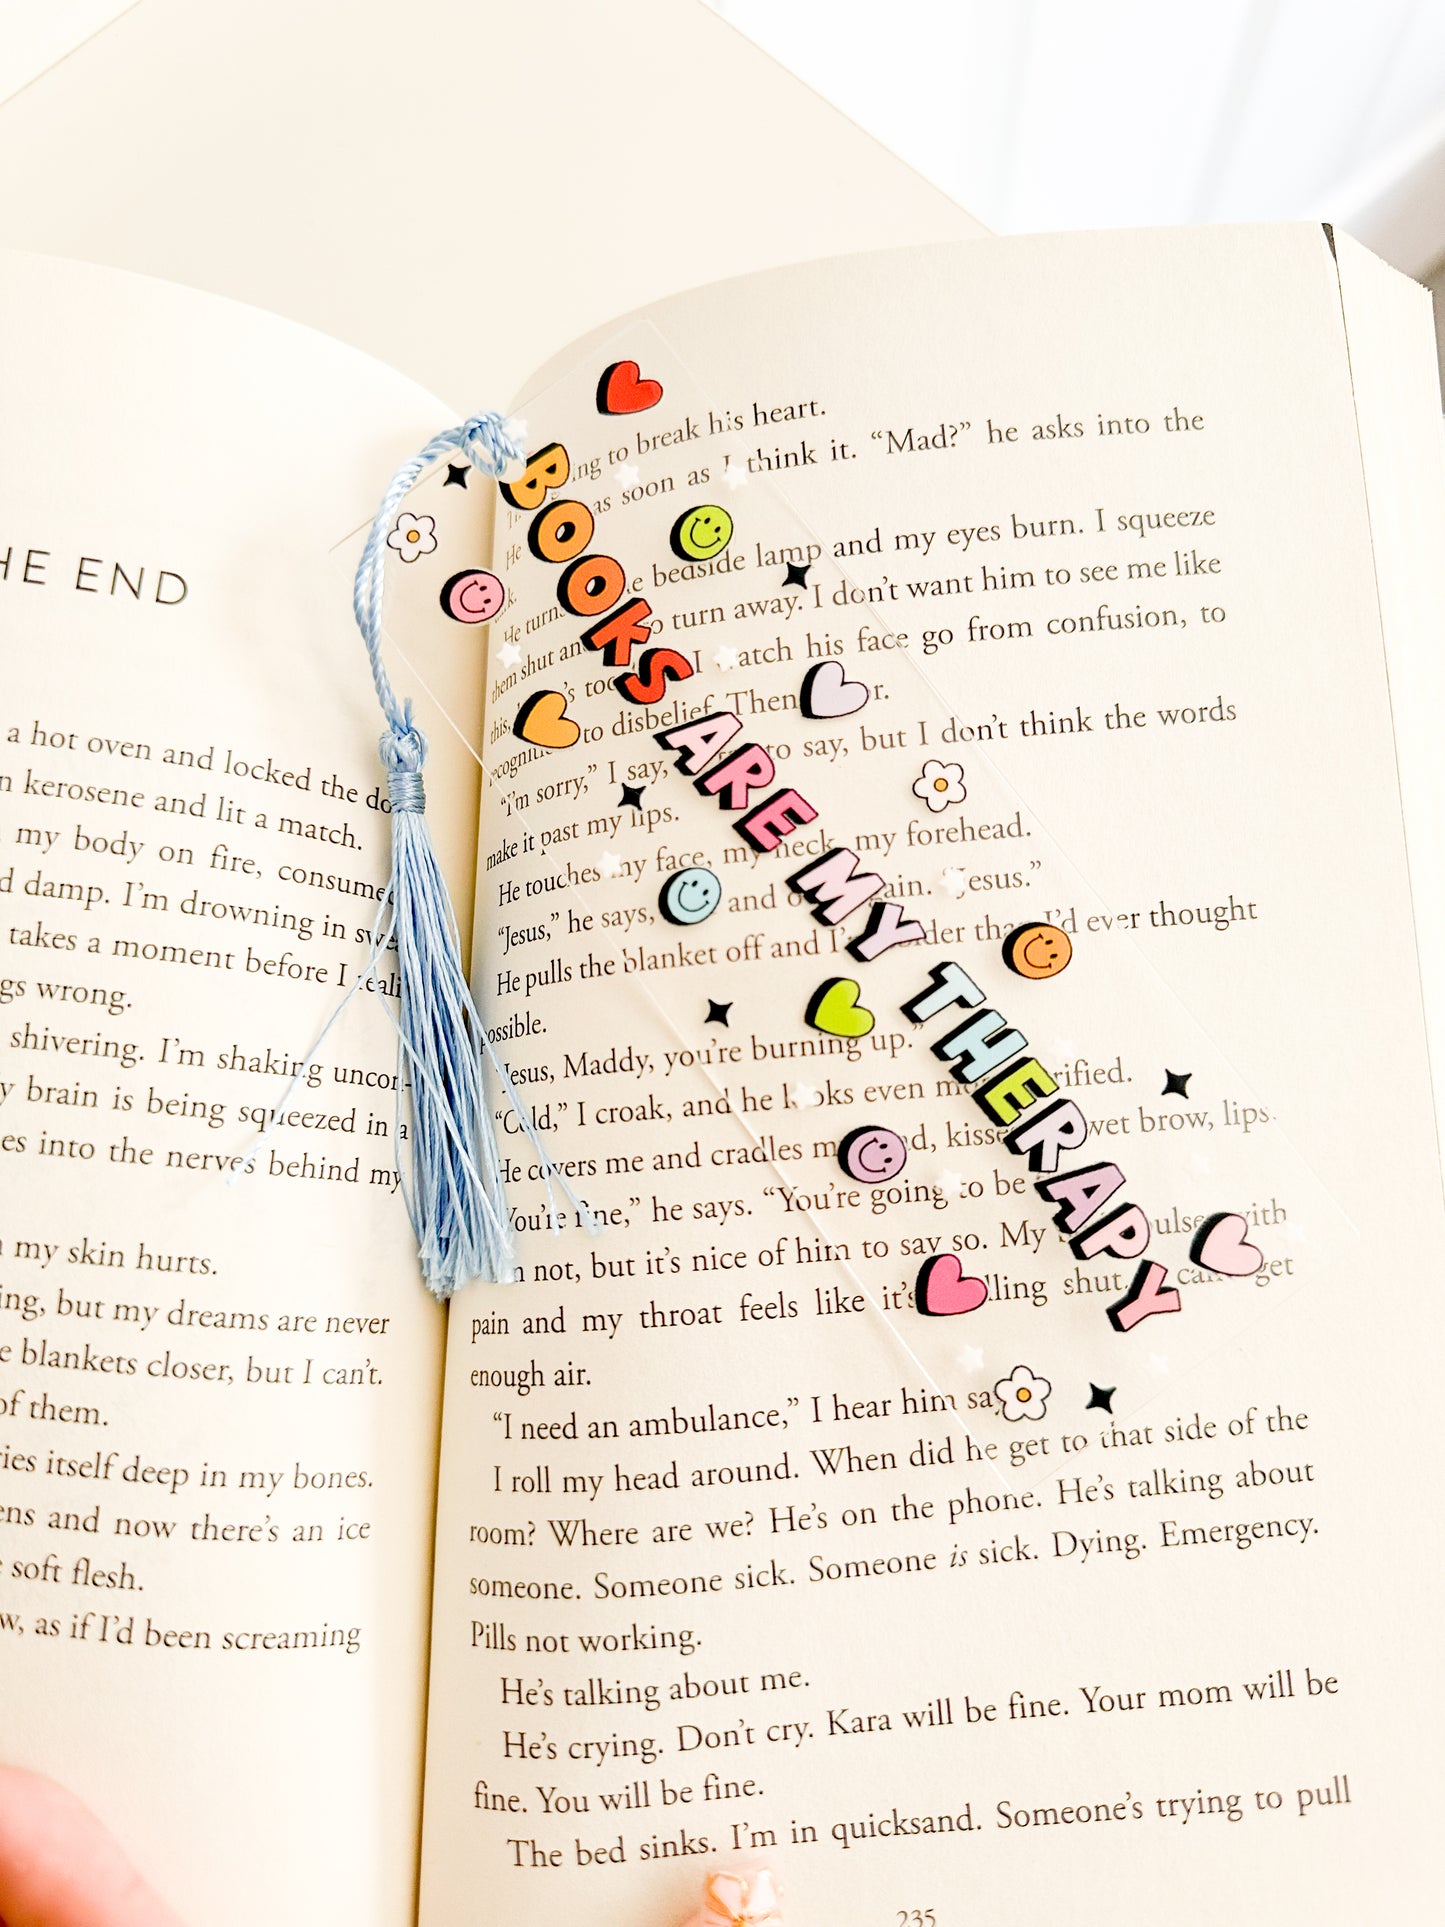 HE END
a hot oven and locked the
kerosene and lit a match.
my body on fire, consumed
damp. I'm drowning in
takes a moment before I
wrong.
shivering. I'm shaking uncon-
brain is being squeezed in a
into the nerves behind my
my skin hurts.
but my dreams are never
blankets closer, but I can't.
of them.
itself deep in my bones.
and now there's an ice
soft flesh.
as if I'd been screaming
BOOKS ARE MY THERAPY
to break his heart.
as soon as I think it. “Mad?” he asks into the
He
He turns beside lamp and my eyes burn. I squeeze
them shut and to turn away. I don't want him to see me like
this, too I watch his face go from confusion, to
to disbelief. Then
“I'm sorry,” I say, to say, but I don't think the words
make it past my lips.
He touches my face, my neck, my forehead.
“Jesus,” he says, and “Jesus.”
He pulls the blanket off and I'd ever thought
possible.
“Jesus, Maddy, you're burning up.”
“Cold,” I croak, and he looks even
He covers me and cradles wet brow, lips.
“You're fine,” he says. “You're going to be
not, but it's nice of him to say so. My with
pain and my throat feels like it's shut. get
enough air.
“I need an ambulance,” I hear him say
I roll my head around. When did he get to that side of the
room? Where are we? He's on the phone. He's talking about
someone. Someone sick. Someone is sick. Dying. Emergency.
Pills not working.
He's talking about me.
He's crying. Don't cry. Kara will be fine. Your mom will be
fine. You will be fine.
The bed sinks. I'm in quicksand. Someone's trying to pull
235